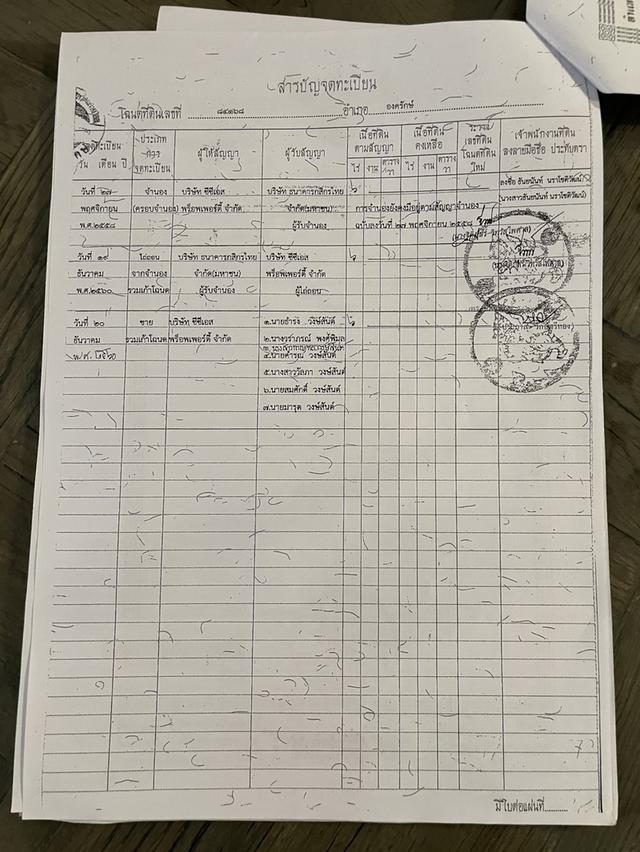 สารบัญจดทะเบียน
โฉนดที่ดินเลขที่ ๘๔๑๖๘ อำเภอ องครักษ์
จดทะเบียน วัน เดือน ปี
ประเภทการจดทะเบียน
ผู้ให้สัญญา
ผู้รับสัญญา
เนื้อที่ดินตามสัญญา
ไร่ งาน ตารางวา
เนื้อที่ดินคงเหลือ
ไร่ งาน ตารางวา
ระวาง เลขที่ดิน โฉนดที่ดินใหม่
เจ้าพนักงานที่ดิน ลงลายมือชื่อ ประทับตรา
วันที่ ๒๗ จำนอง บริษัท ซีซีเอส บริษัท ธนาคารกสิกรไทย ลงชื่อ ธันยนันท์ นราโชติวัฒน์
พฤศจิกายน (ครอบจำนอง) พร็อพเพอร์ตี้ จำกัด จำกัด(มหาชน) การจำนองยังคงมีอยู่ตามสัญญาจำนอง (นางสาวธันยนันท์ นราโชติวัฒน์)
พ.ศ.๒๕๕๘ ผู้รับจำนอง ฉบับลงวันที่ ๒๗ พฤศจิกายน ๒๕๕๘
วันที่ ๑๙ ไถ่ถอน บริษัท ธนาคารกสิกรไทย บริษัท ซีซีเอส
ธันวาคม จากจำนอง จำกัด(มหาชน) พร็อพเพอร์ตี้ จำกัด
พ.ศ.๒๕๖๐ รวมเก้าโฉนด ผู้รับจำนอง ผู้ไถ่ถอน
วันที่ ๒๐ ขาย บริษัท ซีซีเอส ๑.นายธำรง วงษ์สันต์
ธันวาคม รวมเก้าโฉนด พร็อพเพอร์ตี้ จำกัด ๒.นางวราภรณ์ พงศ์พิมล
พ.ศ. ๒๕๖๐ ๔.นายดำรุณ วงษ์สันต์
๕.นางสาววัลภา วงษ์สันต์
๖.นายสมศักดิ์ วงษ์สันต์
๗.นายมารุต วงษ์สันต์
มีใบต่อแผ่นที่